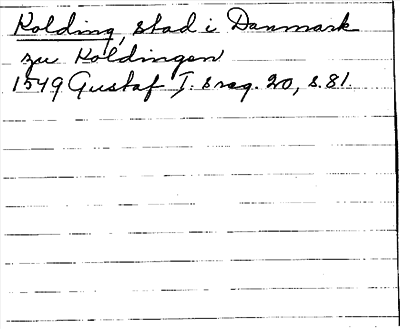 Kolding, stad i Danmark
zu Koldingen
1549 Gustaf I. s reg. 20, s. 81.